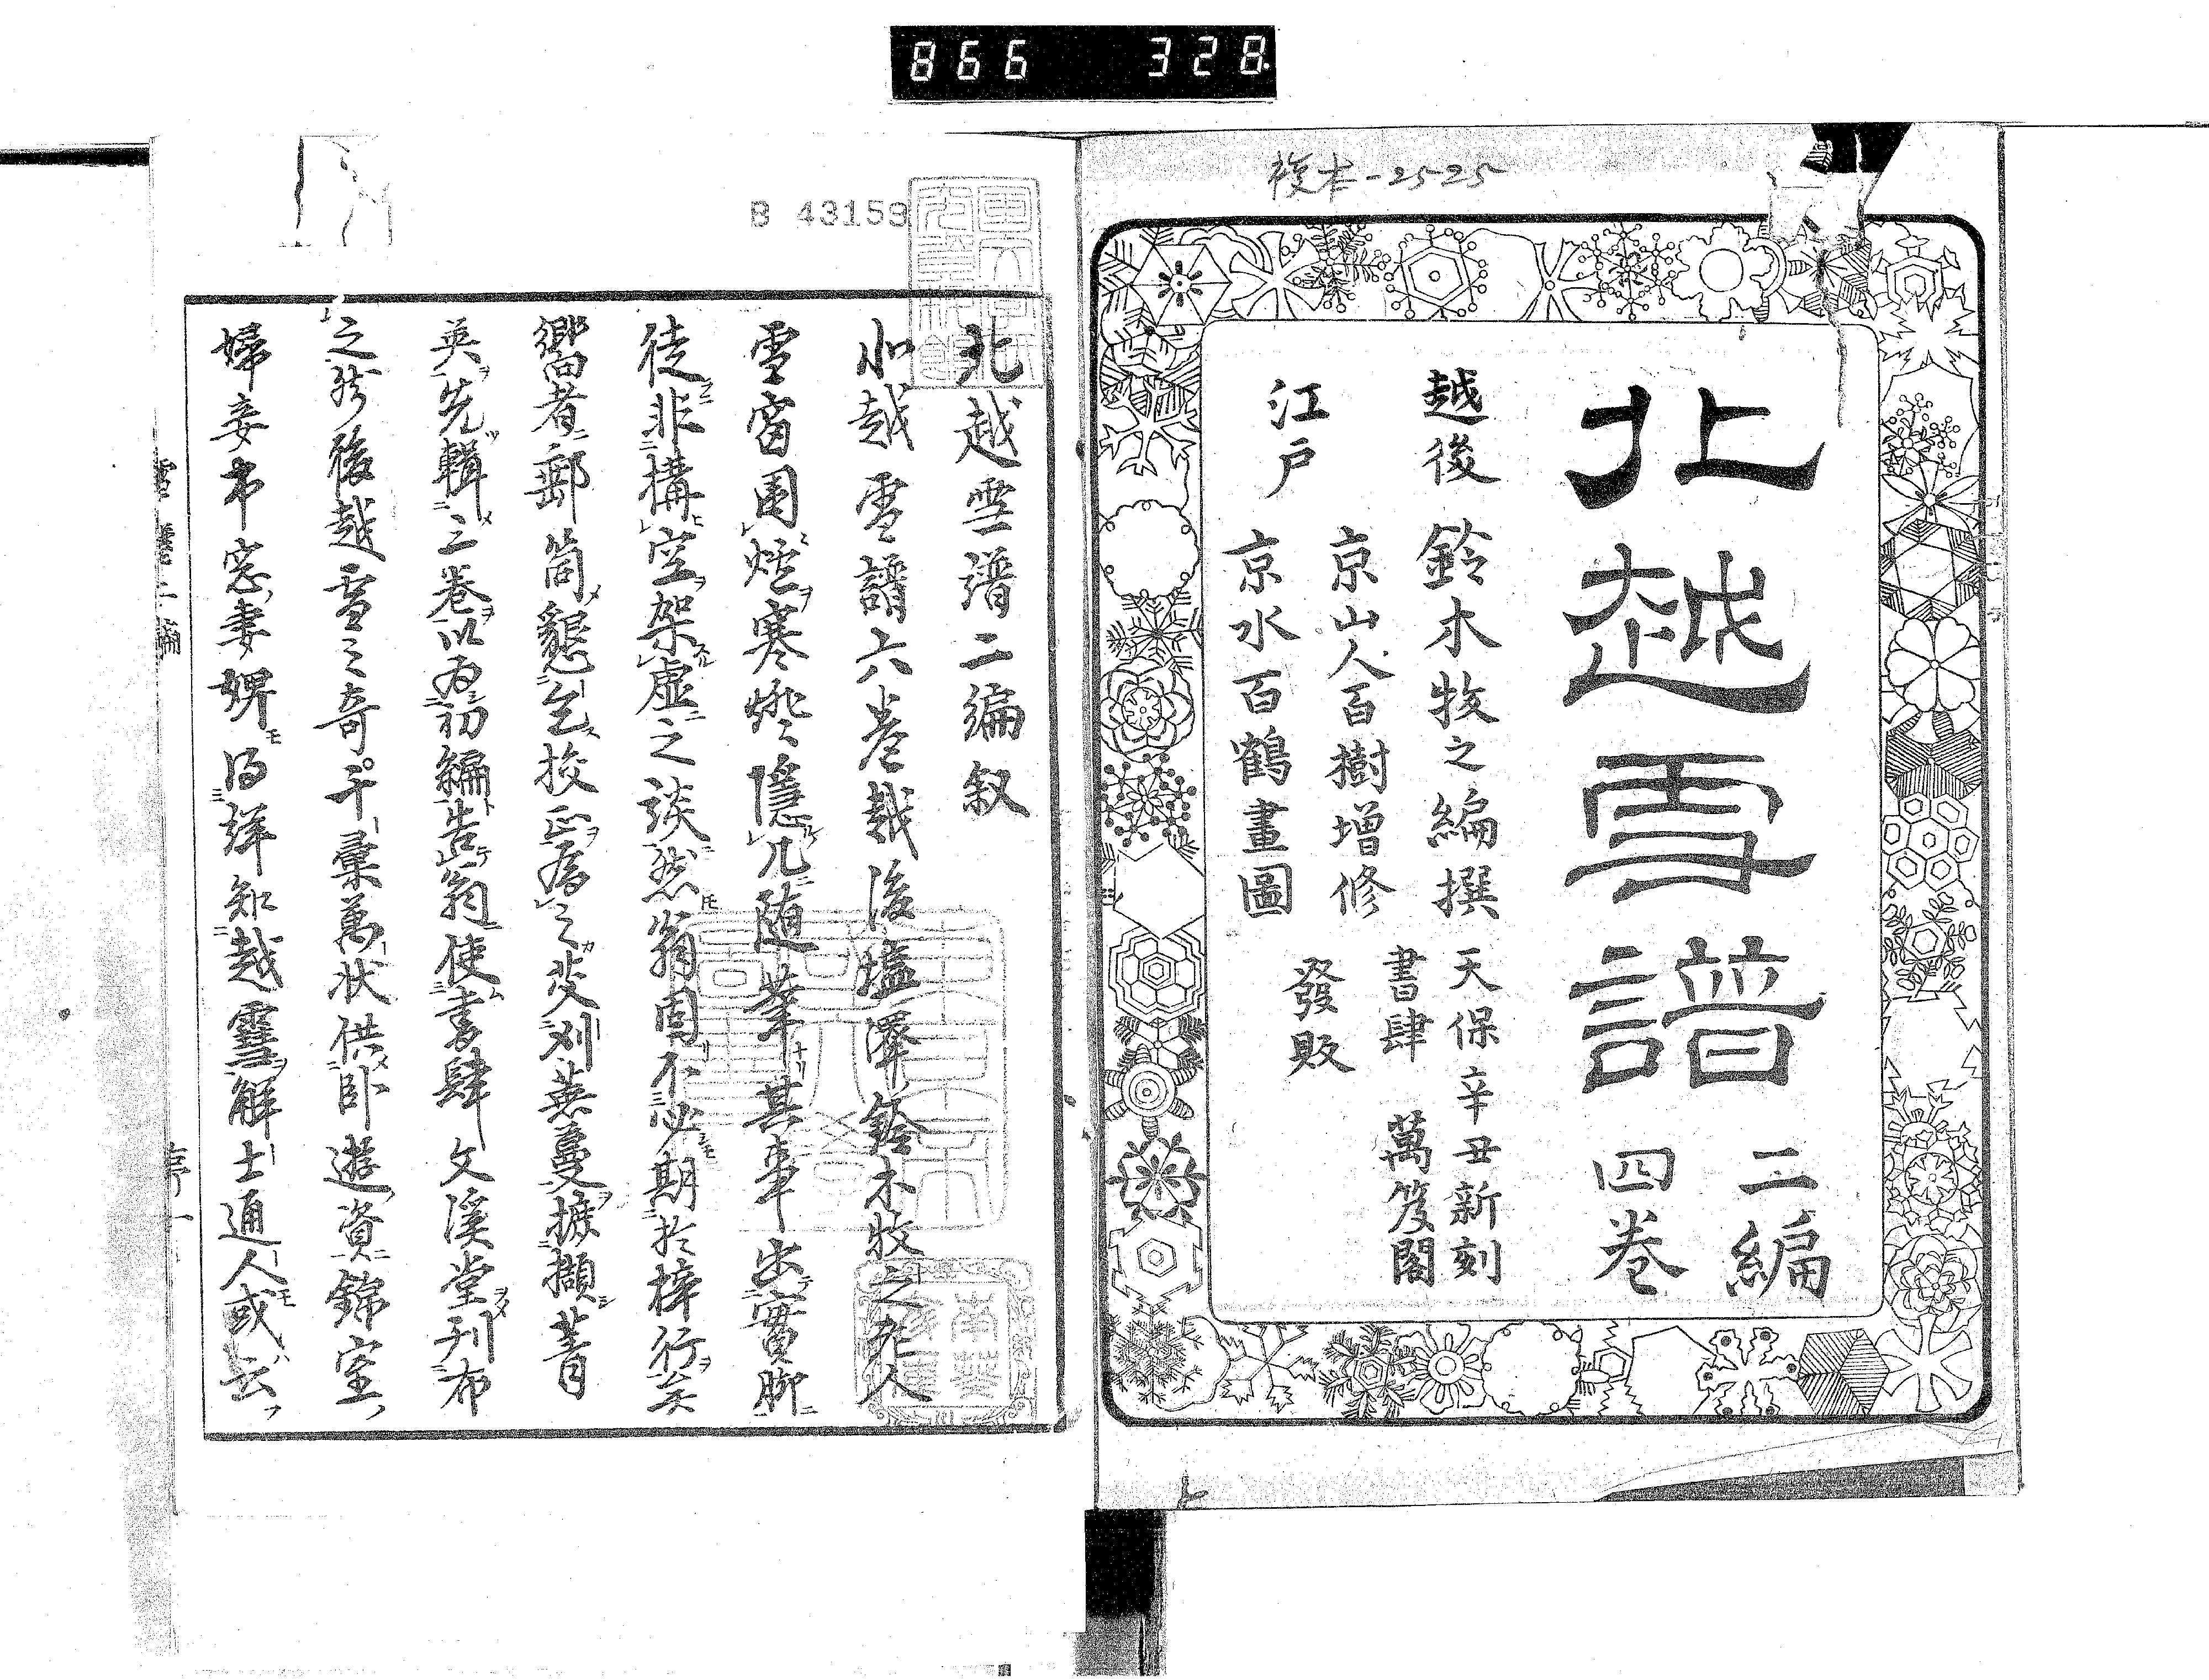 866 328
複本-2525
北越雪譜
二編
四巻
越後 鈴木牧之編撰
江戸 京山人百樹増修
京水百鶴畫圖
天保辛丑新刻
書肆 萬笈閣
發販
B 43159
北越雪譜二編叙
北越雪譜六巻越後塩澤鈴木牧之老人
雪窗囲爐寒燈隱几随筆其事出實脚
徒非構空架虚之談然翁固不必期於梓行矣
嚮者郵筒懇乞挍正爲之芟刈蕪蔓摭擷菁
英先輯三巻以為初編告翁使書肆文溪堂刊布
之於後越雪之奇千彙萬状供卧遊資錦室
婦妾市窓妻婢得詳知越雪解士通人或云
雪譜二編
序一